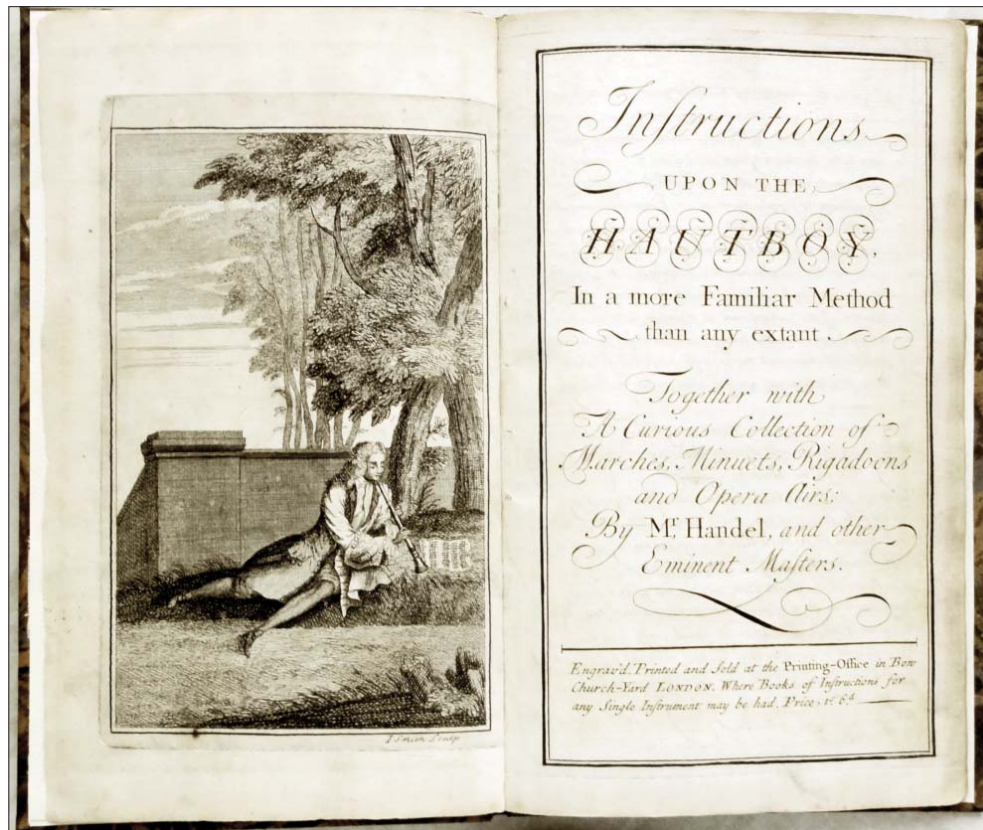 I Smith Sculp
Inſtructions
UPON THE
HAUTBOY,
In a more Familiar Method
than any extant
Together with
A Curious Collection of
Marches, Minuets, Rigadoons
and Opera Airs;
By Mr. Handel, and other
Eminent Maſters.
Engrav'd, Printed and Sold at the Printing-Office in Bow
Church-Yard LONDON. Where Books of Inſtructions for
any Single Inſtrument may be had. Price, 1s. 6d.